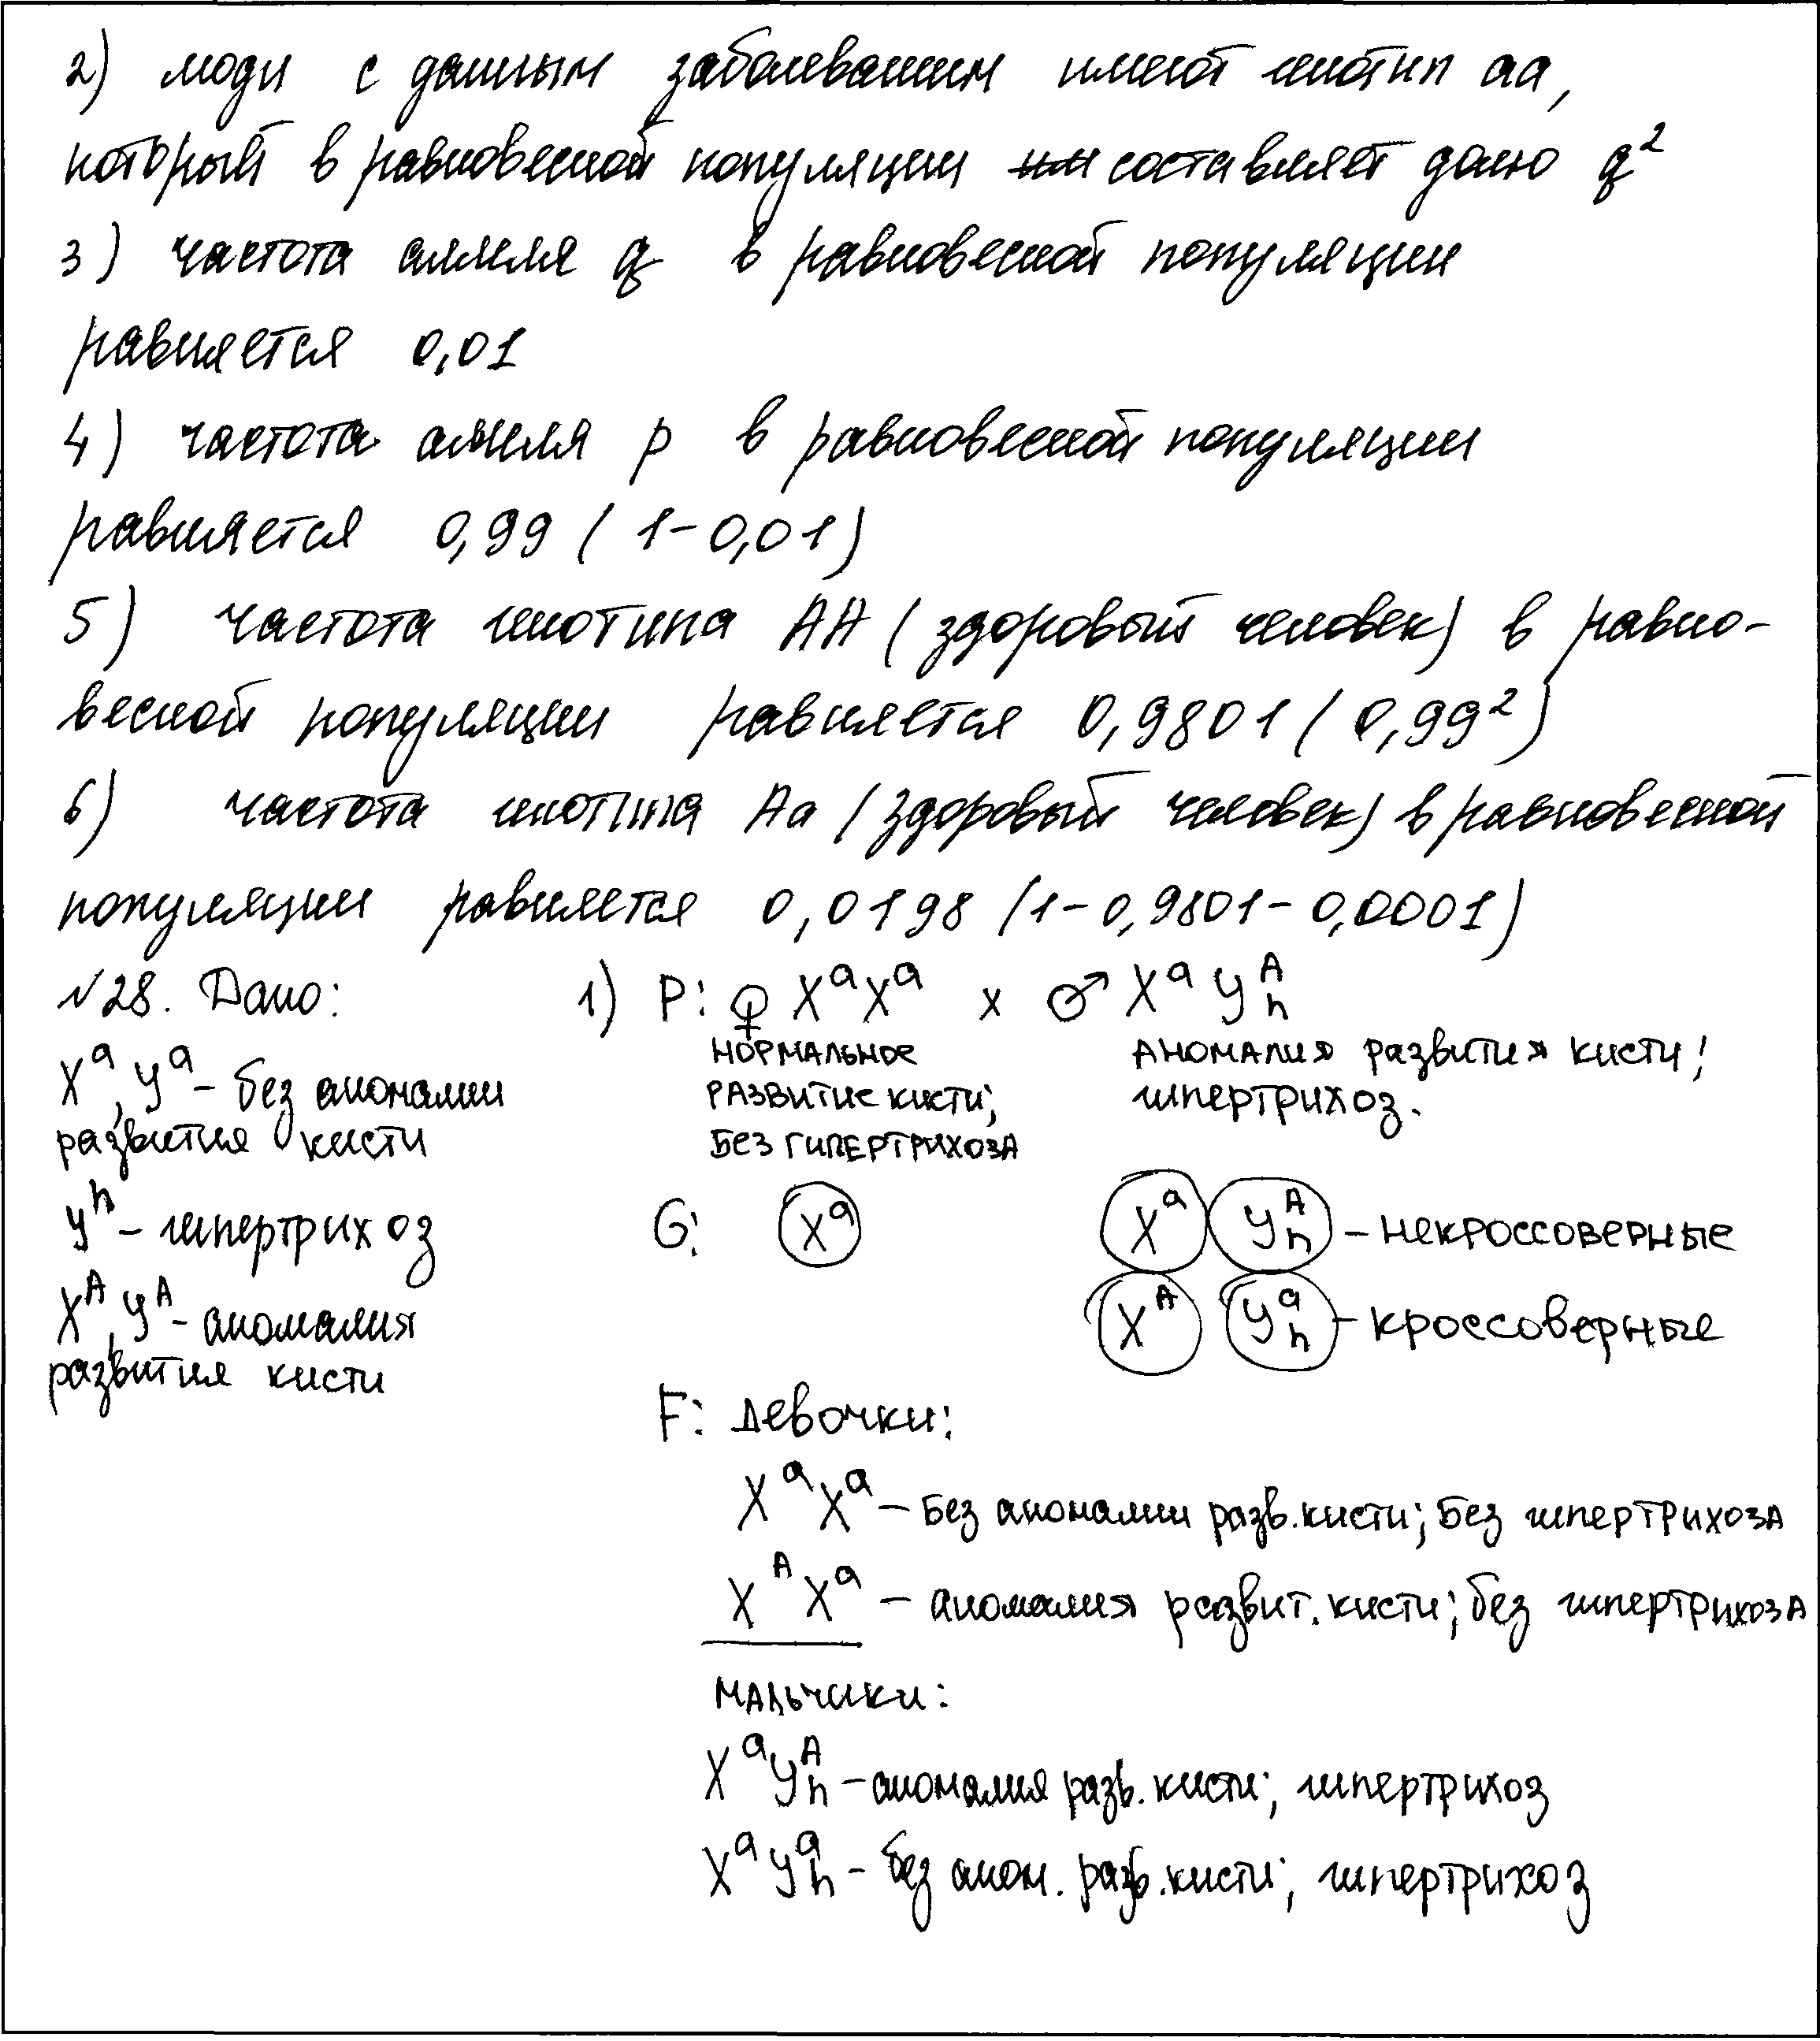 2) люди с данным заболеванием имеют генотип aa,
который в равновесной популяции составляет долю q²
3) частота аллеля q в равновесной популяции
равняется 0,01
4) частота аллеля p в равновесной популяции
равняется 0,99 (1-0,01)
5) частота генотипа AA (здоровый человек) в равно-
весной популяции равняется 0,9801 (0,99²)
6) частота генотипа Aa (здоровый человек) в равновесной
популяции равняется 0,0198 (1-0,9801-0,0001)
№28. Дано:
Xᵃ, Yᵃ - без аномалии
развития кисти
Yʰ - гипертрихоз
Xᴬ, Yᴬ - аномалия
развития кисти
1) P: ♀ XᵃXᵃ x ♂ XᵃYₕᴬ
нормальное
развитие кисти;
без гипертрихоза
аномалия развития кисти;
гипертрихоз.
G: Xᵃ Xᵃ Yₕᴬ - некроссоверные
Xᴬ Yₕᵃ - кроссоверные
F: девочки:
XᵃXᵃ - без аномалии разв. кисти; без гипертрихоза
XᴬXᵃ - аномалия развит. кисти; без гипертрихоза
мальчики:
XᵃYₕᴬ - аномалия разв. кисти; гипертрихоз
XᵃYₕᵃ - без аном. разв. кисти; гипертрихоз